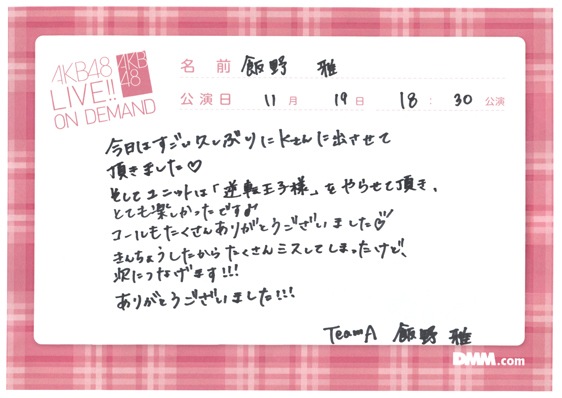 AKB48
LIVE!!
ON DEMAND
AKB
48
名 前 飯野 雅
公演日 11月 19日 18:30 公演
今日はすごい久しぶりにKさんに出させて
頂きました♡
そしてユニットは「逆転王子様」をやらせて頂き、
とても楽しかったです♪
コールもたくさんありがとうございました♡
きんちょうしたからたくさんミスしてしまったけど、
次につなげます!!!
ありがとうございました!!!
TeamA 飯野 雅
DMM.com